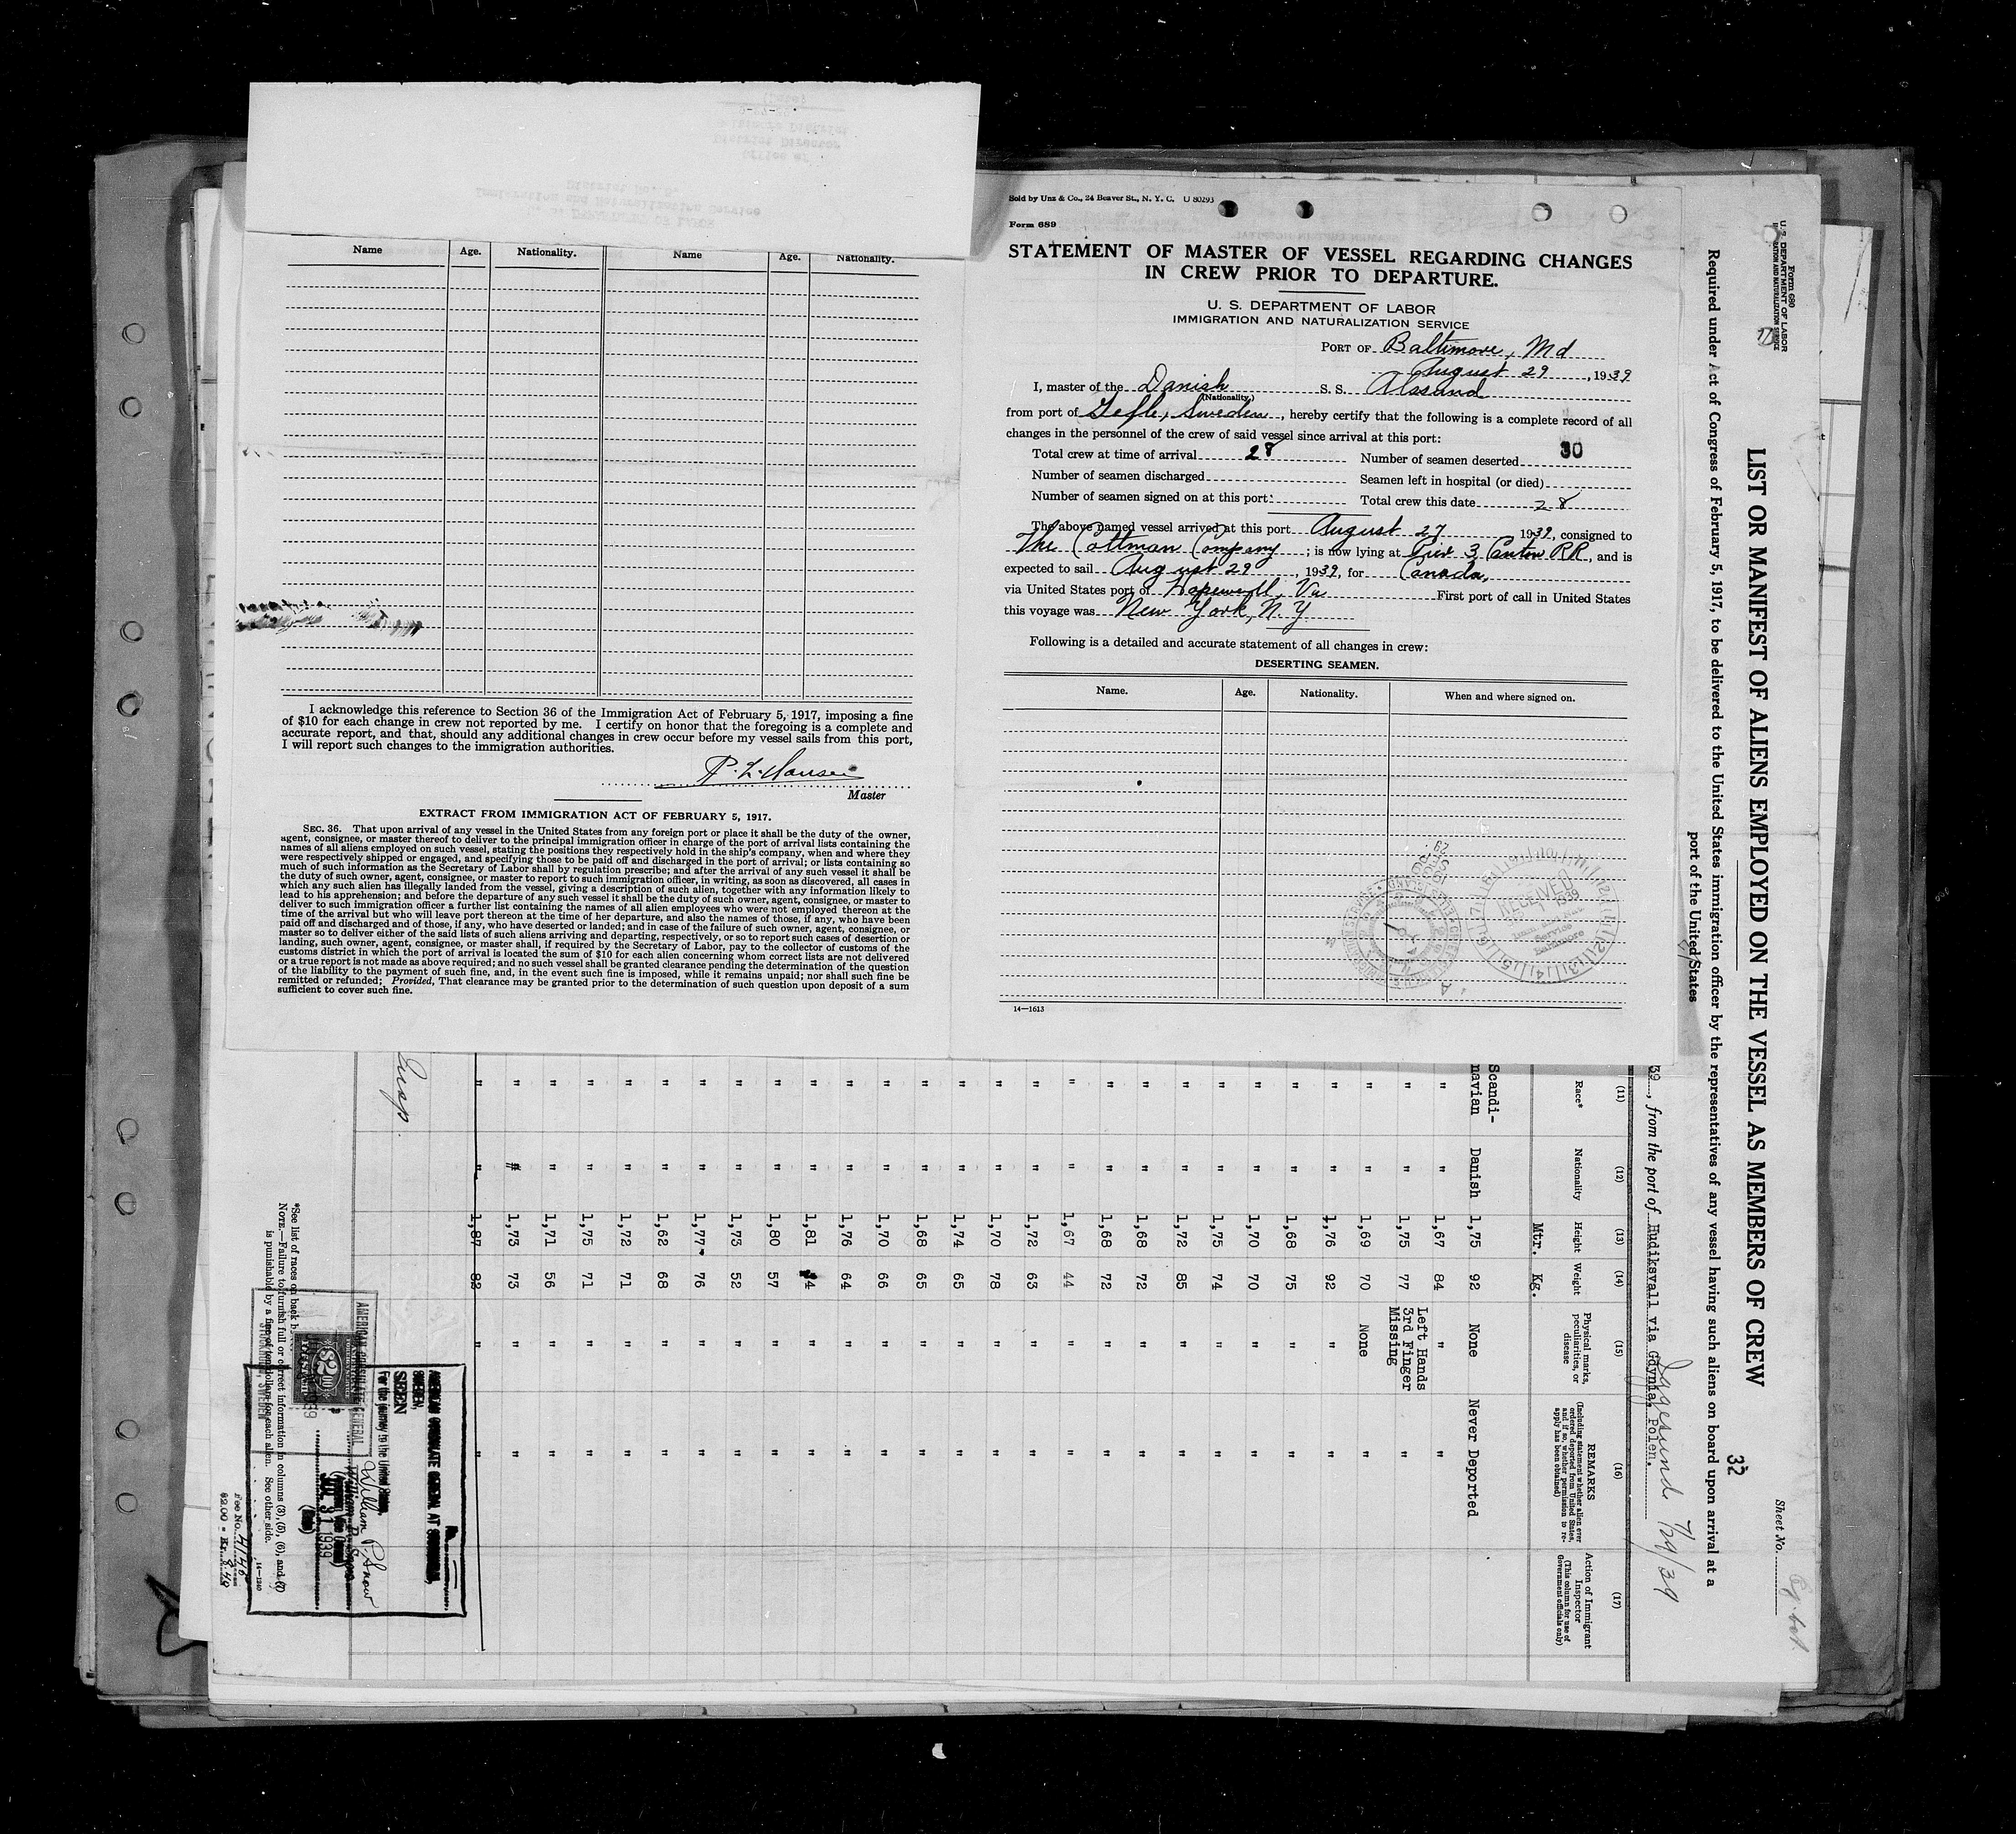 Name Age. Nationality. Name Age. Nationality.
I acknowledge this reference to Section 36 of the Immigration Act of February 5, 1917, imposing a fine
of $10 for each change in crew not reported by me. I certify on honor that the foregoing is a complete and
accurate report, and that, should any additional changes in crew occur before my vessel sails from this port,
I will report such changes to the immigration authorities.
Master
EXTRACT FROM IMMIGRATION ACT OF FEBRUARY 5, 1917.
SEC. 36. That upon arrival of any vessel in the United States from any foreign port or place it shall be the duty of the owner,
agent, consignee, or master thereof to deliver to the principal immigration officer in charge of the port of arrival lists containing the
names of all aliens employed on such vessel, stating the positions they respectively hold in the ship's company, when and where they
were respectively shipped or engaged, and specifying those to be paid off and discharged in the port of arrival; or lists containing so
much of such information as the Secretary of Labor shall by regulation prescribe; and after the arrival of any such vessel it shall be
the duty of such owner, agent, consignee, or master to report to such immigration officer, in writing, as soon as discovered, all cases in
which any such alien has illegally landed from the vessel, giving a description of such alien, together with any information likely to
lead to his apprehension; and before the departure of any such vessel it shall be the duty of such owner, agent, consignee, or master to
deliver to such immigration officer a further list containing the names of all alien employees who were not employed thereon at the
time of the arrival but who will leave port thereon at the time of her departure, and also the names of those, if any, who have been
paid off and discharged and of those, if any, who have deserted or landed; and in case of the failure of such owner, agent, consignee, or
master so to deliver either of the said lists of such aliens arriving and departing, respectively, or so to report such cases of desertion or
landing, such owner, agent, consignee, or master shall, if required by the Secretary of Labor, pay to the collector of customs of the
customs district in which the port of arrival is located the sum of $10 for each alien concerning whom correct lists are not delivered
or a true report is not made as above required; and no such vessel shall be granted clearance pending the determination of the question
of the liability to the payment of such fine, and, in the event such fine is imposed, while it remains unpaid; nor shall such fine be
remitted or refunded; Provided, That clearance may be granted prior to the determination of such question upon deposit of a sum
sufficient to cover such fine.
Sold by Unz & Co., 24 Beaver St., N. Y. C. U 80293
Form 689
STATEMENT OF MASTER OF VESSEL REGARDING CHANGES
IN CREW PRIOR TO DEPARTURE.
U. S. DEPARTMENT OF LABOR
IMMIGRATION AND NATURALIZATION SERVICE
PORT OF Baltimore, Md
August 29, 1939
I, master of the Danish S. S. Alssund
(Nationality.)
from port of Gefle, Sweden, hereby certify that the following is a complete record of all
changes in the personnel of the crew of said vessel since arrival at this port:
Total crew at time of arrival 28 Number of seamen deserted 30
Number of seamen discharged Seamen left in hospital (or died)
Number of seamen signed on at this port: Total crew this date 28
The above named vessel arrived at this port August 27 1939, consigned to
The Cottman Company; is now lying at Pier 3 Canton RR, and is
expected to sail August 29, 1939, for Canada,
via United States port of Hopewell, Va First port of call in United States
this voyage was New York, N. Y
Following is a detailed and accurate statement of all changes in crew:
DESERTING SEAMEN.
Name. Age. Nationality. When and where signed on.
RECEIVED
1939
Baltimore
14—1613
Form 680
U. S. DEPARTMENT OF LABOR
IMMIGRATION AND NATURALIZATION SERVICE
Sheet No.
32
LIST OR MANIFEST OF ALIENS EMPLOYED ON THE VESSEL AS MEMBERS OF CREW
Required under Act of Congress of February 5, 1917, to be delivered to the United States immigration officer by the representatives of any vessel having such aliens on board upon arrival at a
port of the United States
Iggesund 7/29/39
39, from the port of Hudiksvall via Gdynia, Polen.
(11) (12) (13) (14) (15) (16) (17)
Race* Nationality Height Weight Physical marks, peculiarities, or disease REMARKS (Including statement whether alien ever ordered deported from United States, and if so, whether permission to reapply has been obtained) Action of Immigrant Inspector (This column for use of Government officials only)
Mtr. Kg.
Scandi-
navian Danish 1,75 92 None Never Deported
" " 1,67 84 " "
" " 1,75 77 Left Hands 3rd Finger Missing "
" " 1,69 70 None "
" " 1,76 92 " "
" " 1,68 75 " "
" " 1,70 70 " "
" " 1,75 74 " "
" " 1,72 85 " "
" " 1,68 72 " "
" " 1,68 72 " "
" " 1,67 44 " "
" " 1,72 63 " "
" " 1,70 78 " "
" " 1,74 65 " "
" " 1,68 65 " "
" " 1,70 66 " "
" " 1,76 64 " "
" " 1,81 4 " "
" " 1,80 57 " "
" " 1,73 52 " "
" " 1,77 76 " "
" " 1,62 68 " "
" " 1,72 71 " "
" " 1,75 71 " "
" " 1,71 56 " "
" " 1,73 73 " "
" " 1,87 82 " "
AMERICAN CONSULATE GENERAL AT STOCKHOLM,
SWEDEN,
SEEN
For the journey to the United States.
William P. Snow
JUL 31 1939
(Date)
AMERICAN CONSULATE GENERAL
STOCKHOLM, SWEDEN
$2.00
*See list of races on back
NOTE.—Failure to furnish full or correct information in columns (3), (5), (6), and (7)
is punishable by a fine of ten dollars for each alien. See other side.
14—1240
Fee No. 4146
$2.00 = Kr. 8.40